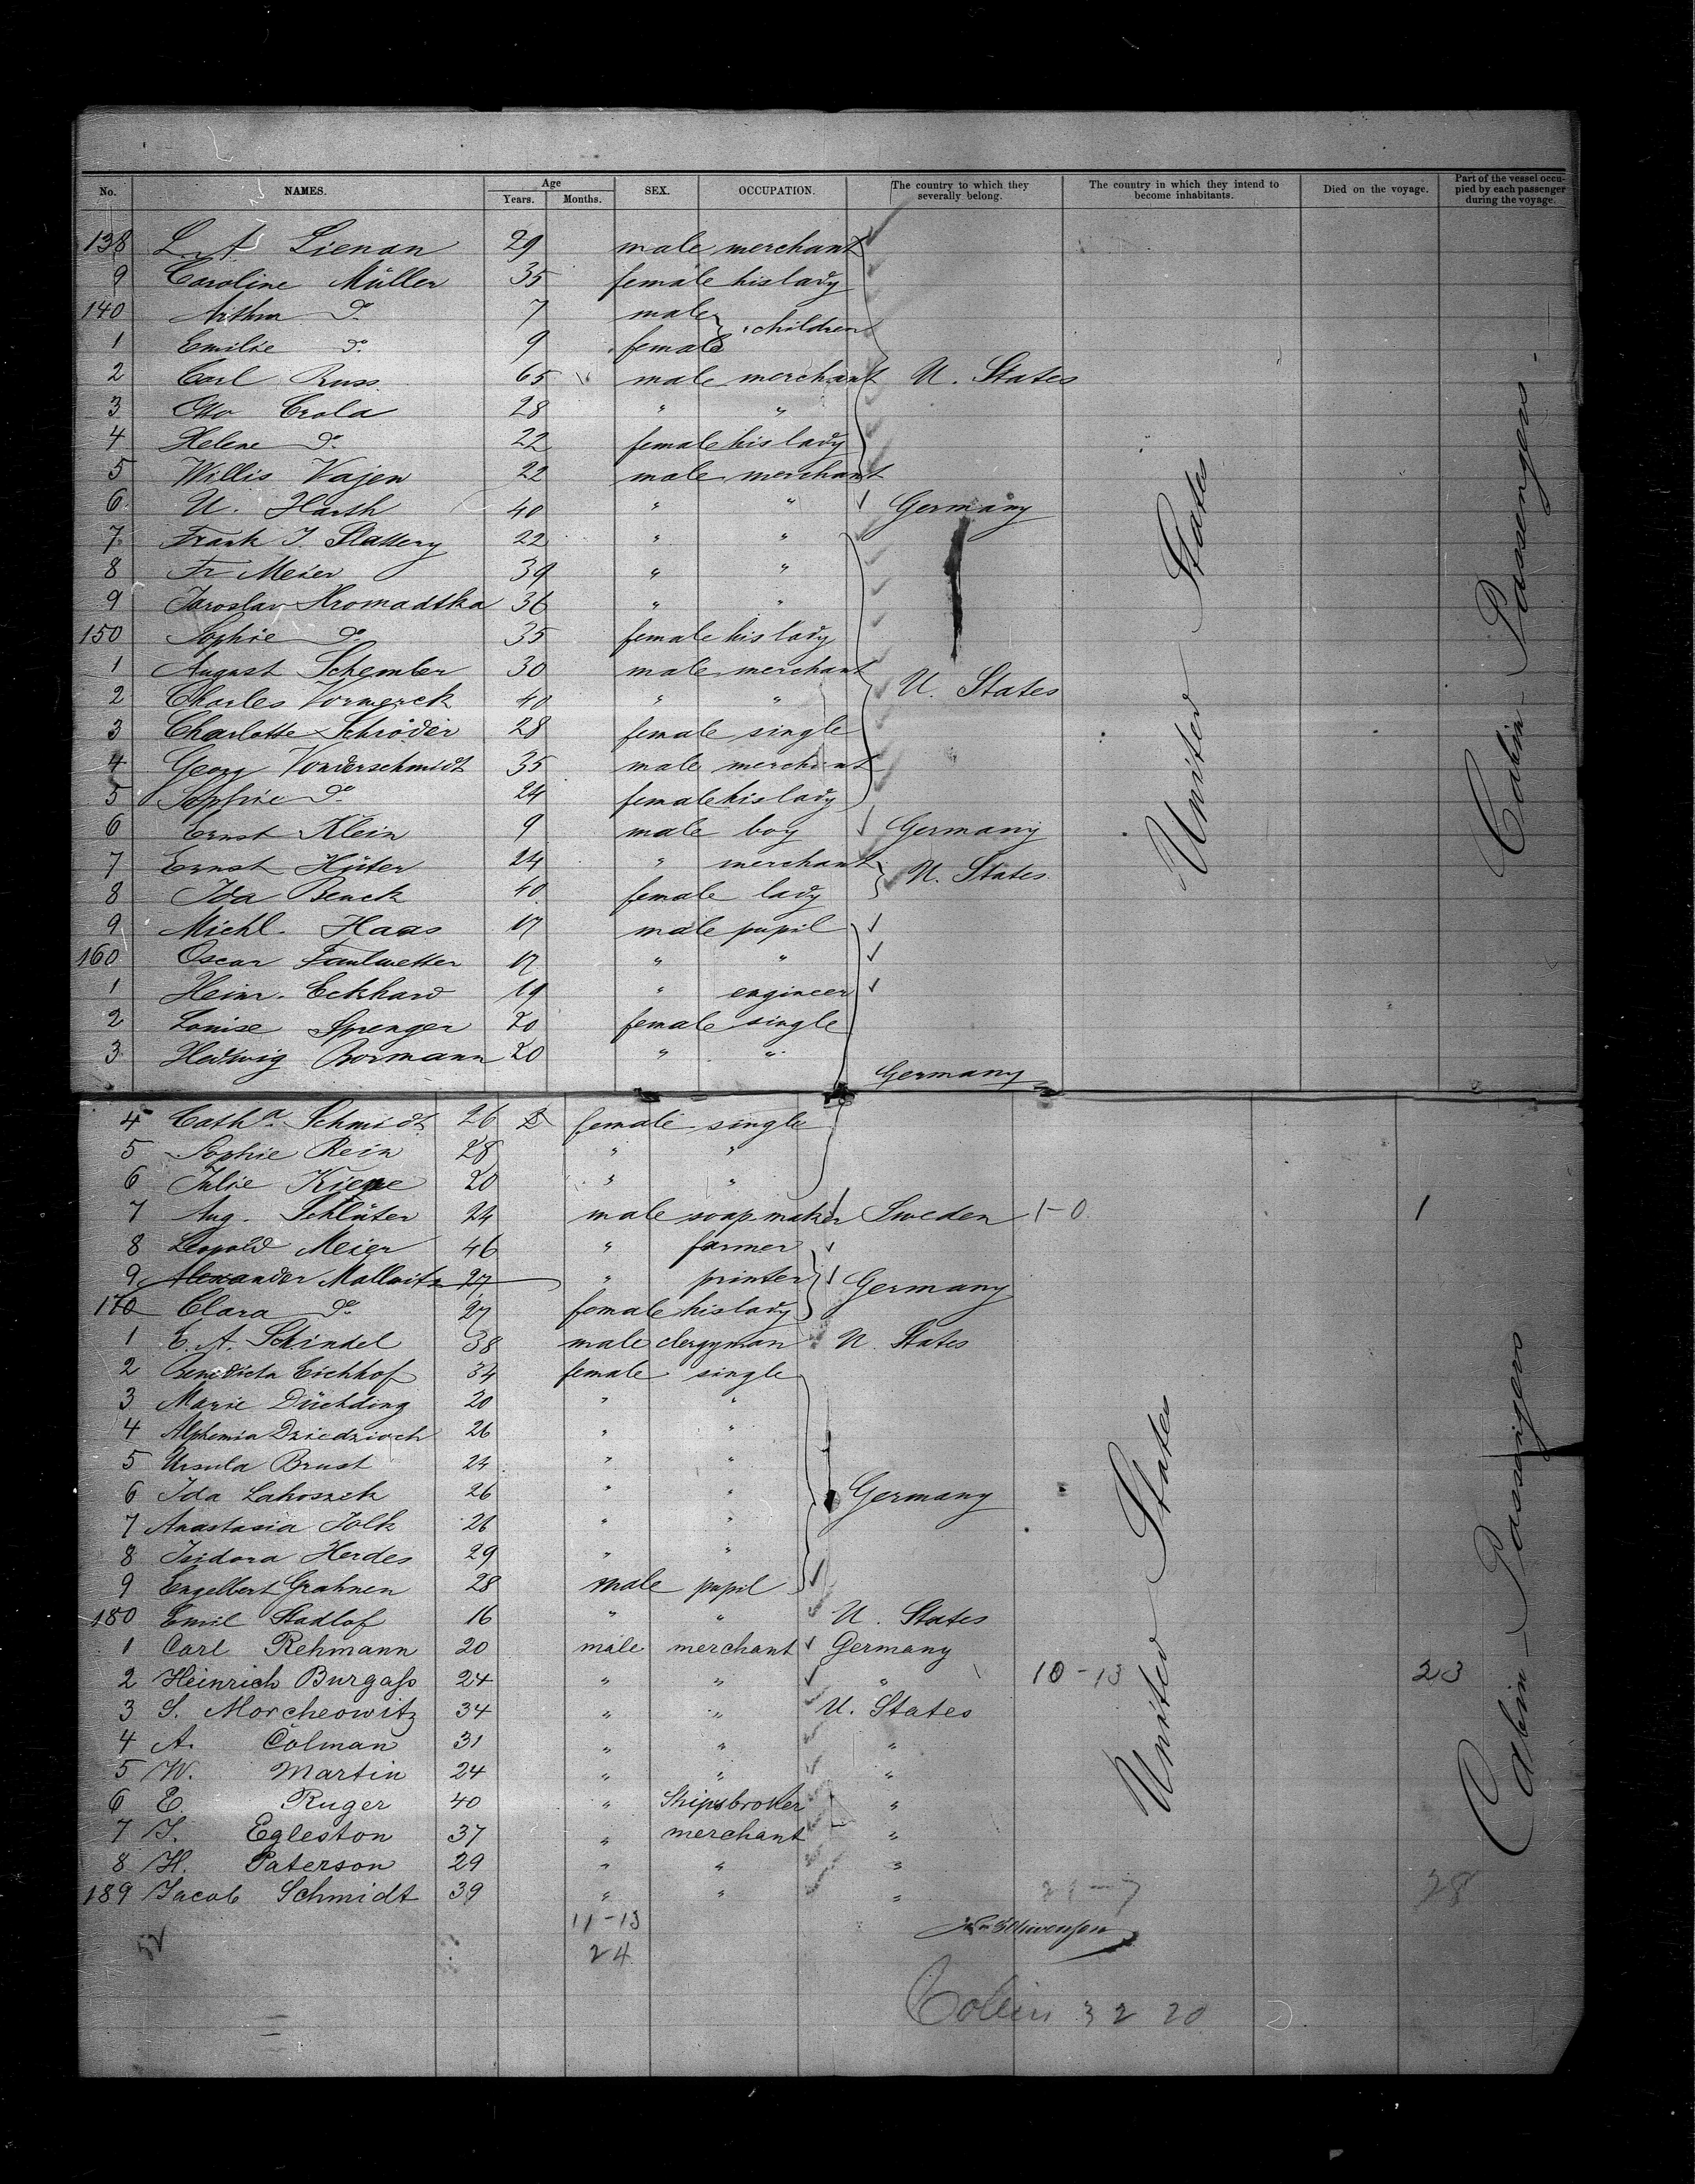 No. NAMES. Age Years. Months. SEX. OCCUPATION. The country to which they severally belong. The country in which they intend to become inhabitants. Died on the voyage. Part of the vessel occupied by each passenger during the voyage.
138 L. A. Lienan 29 male merchant
9 Caroline Müller 35 female his lady
140 Arthur do. 7 male children
1 Emilie do. 9 female
2 Carl Russ 65 male merchant U. States
3 Otto Crola 28 " "
4 Helene do. 22 female his lady
5 Willis Vajen 22 male merchant
6 U. Harth 40 " " Germany
7 Frank J. Slattery 22 " "
8 Fr Meier 39 " "
9 Jaroslav Hromadtka 36 " "
150 Sophie do. 35 female his lady
1 August Schember 30 male merchant U. States
2 Charles Vormerck 40 " "
3 Charlotte Schröder 28 female single
4 Georg Vonderschmidt 35 male merchant
5 Sophie do. 24 female his lady
6 Ernst Klein 9 male boy Germany
7 Ernst Hüter 24 " merchant U. States
8 Ida Benck 40 female lady
9 Michl. Haas 17 male pupil
160 Oscar Faulwetter 17 " "
1 Heinr. Eckhard 19 " engineer
2 Louise Sprenger 20 female single
3 Hedwig Bormann 20 " "
Germany
United States
Cabin Passengers
4 Catha. Schmidt 26 female single
5 Sophie Rein 28 " "
6 Julie Kiepe 20 " "
7 Aug. Schlüter 24 male soapmaker Sweden 1-0 1
8 Leopold Meier 46 " farmer
9 Alexander Mallwitz 27 " printer Germany
170 Clara do. 27 female his lady
1 E. A. Schindel 38 male clergyman U. States
2 Benedicta Eichhof 34 female single
3 Marie Düchding 20 " "
4 Alphemia Dziedzioch 26 " "
5 Ursula Brust 24 " "
6 Ida Lahoszek 26 " " Germany
7 Anastasia Jolk 26 " "
8 Isidora Herdes 29 " "
9 Engelbert Grahnen 28 male pupil
180 Emil Stadlof 16 " " U. States
1 Carl Rehmann 20 male merchant Germany
2 Heinrich Burgass 24 " " " 10-13 23
3 S. Morcheowitz 34 " " U. States
4 A. Colman 31 " " "
5 W. Martin 24 " " "
6 E. Ruger 40 " Shipsbroker "
7 T. Egleston 37 " merchant "
8 H. Paterson 29 " " "
189 Jacob Schmidt 39 " " "
28
United States
Cabin Passengers
11-13
52
24
32 20